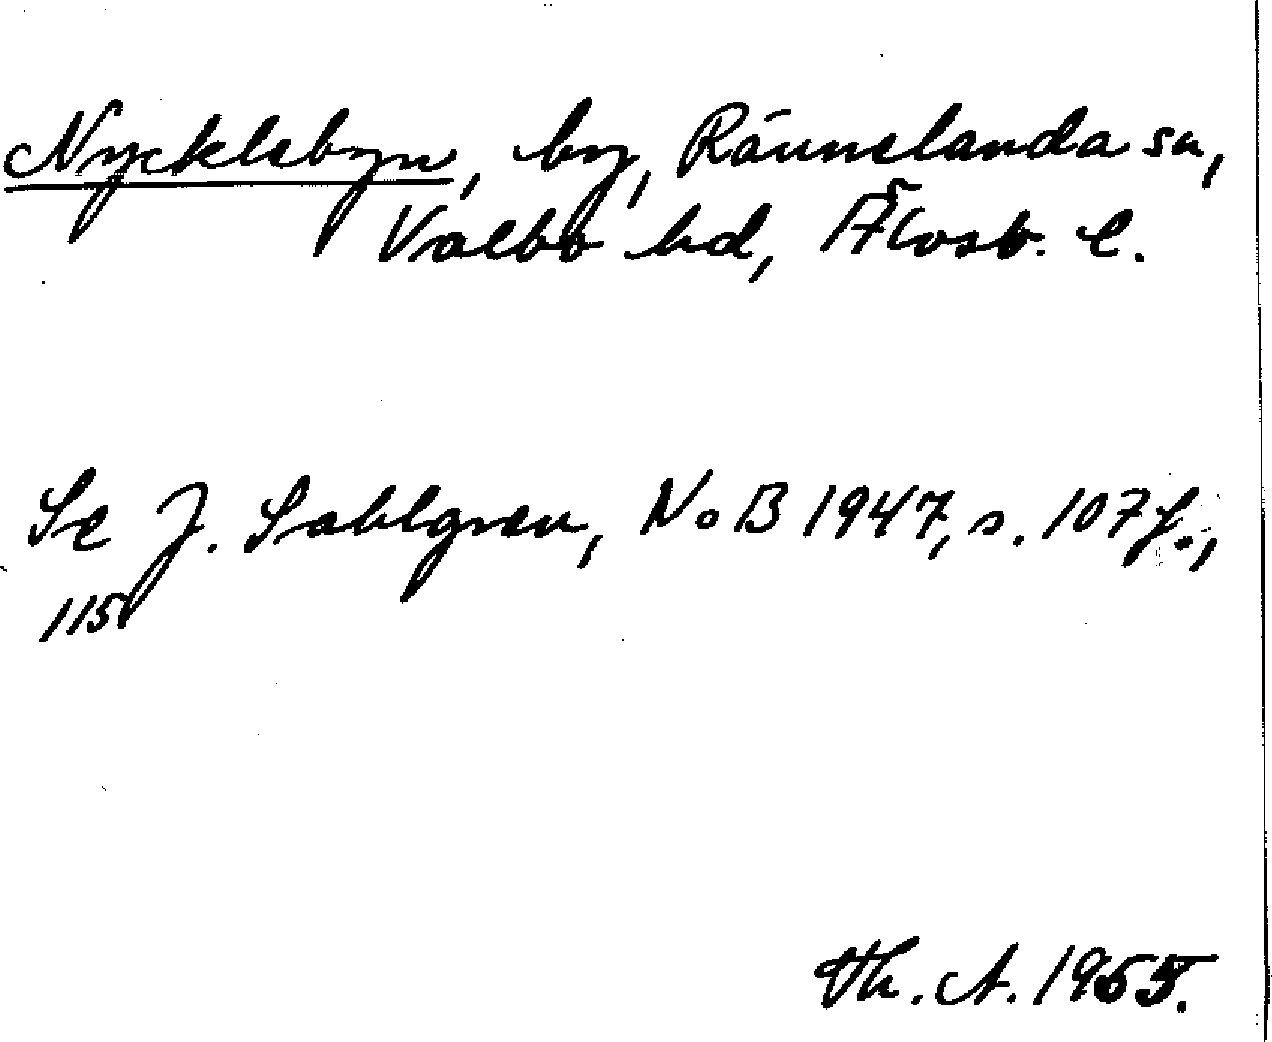 Nycklebyn, by, Rännelanda sn,
Valbo hd, Älvsb. l.
Se J. Sahlgren, NoB 1947, s. 107 f.,
115
Th. A. 1965.